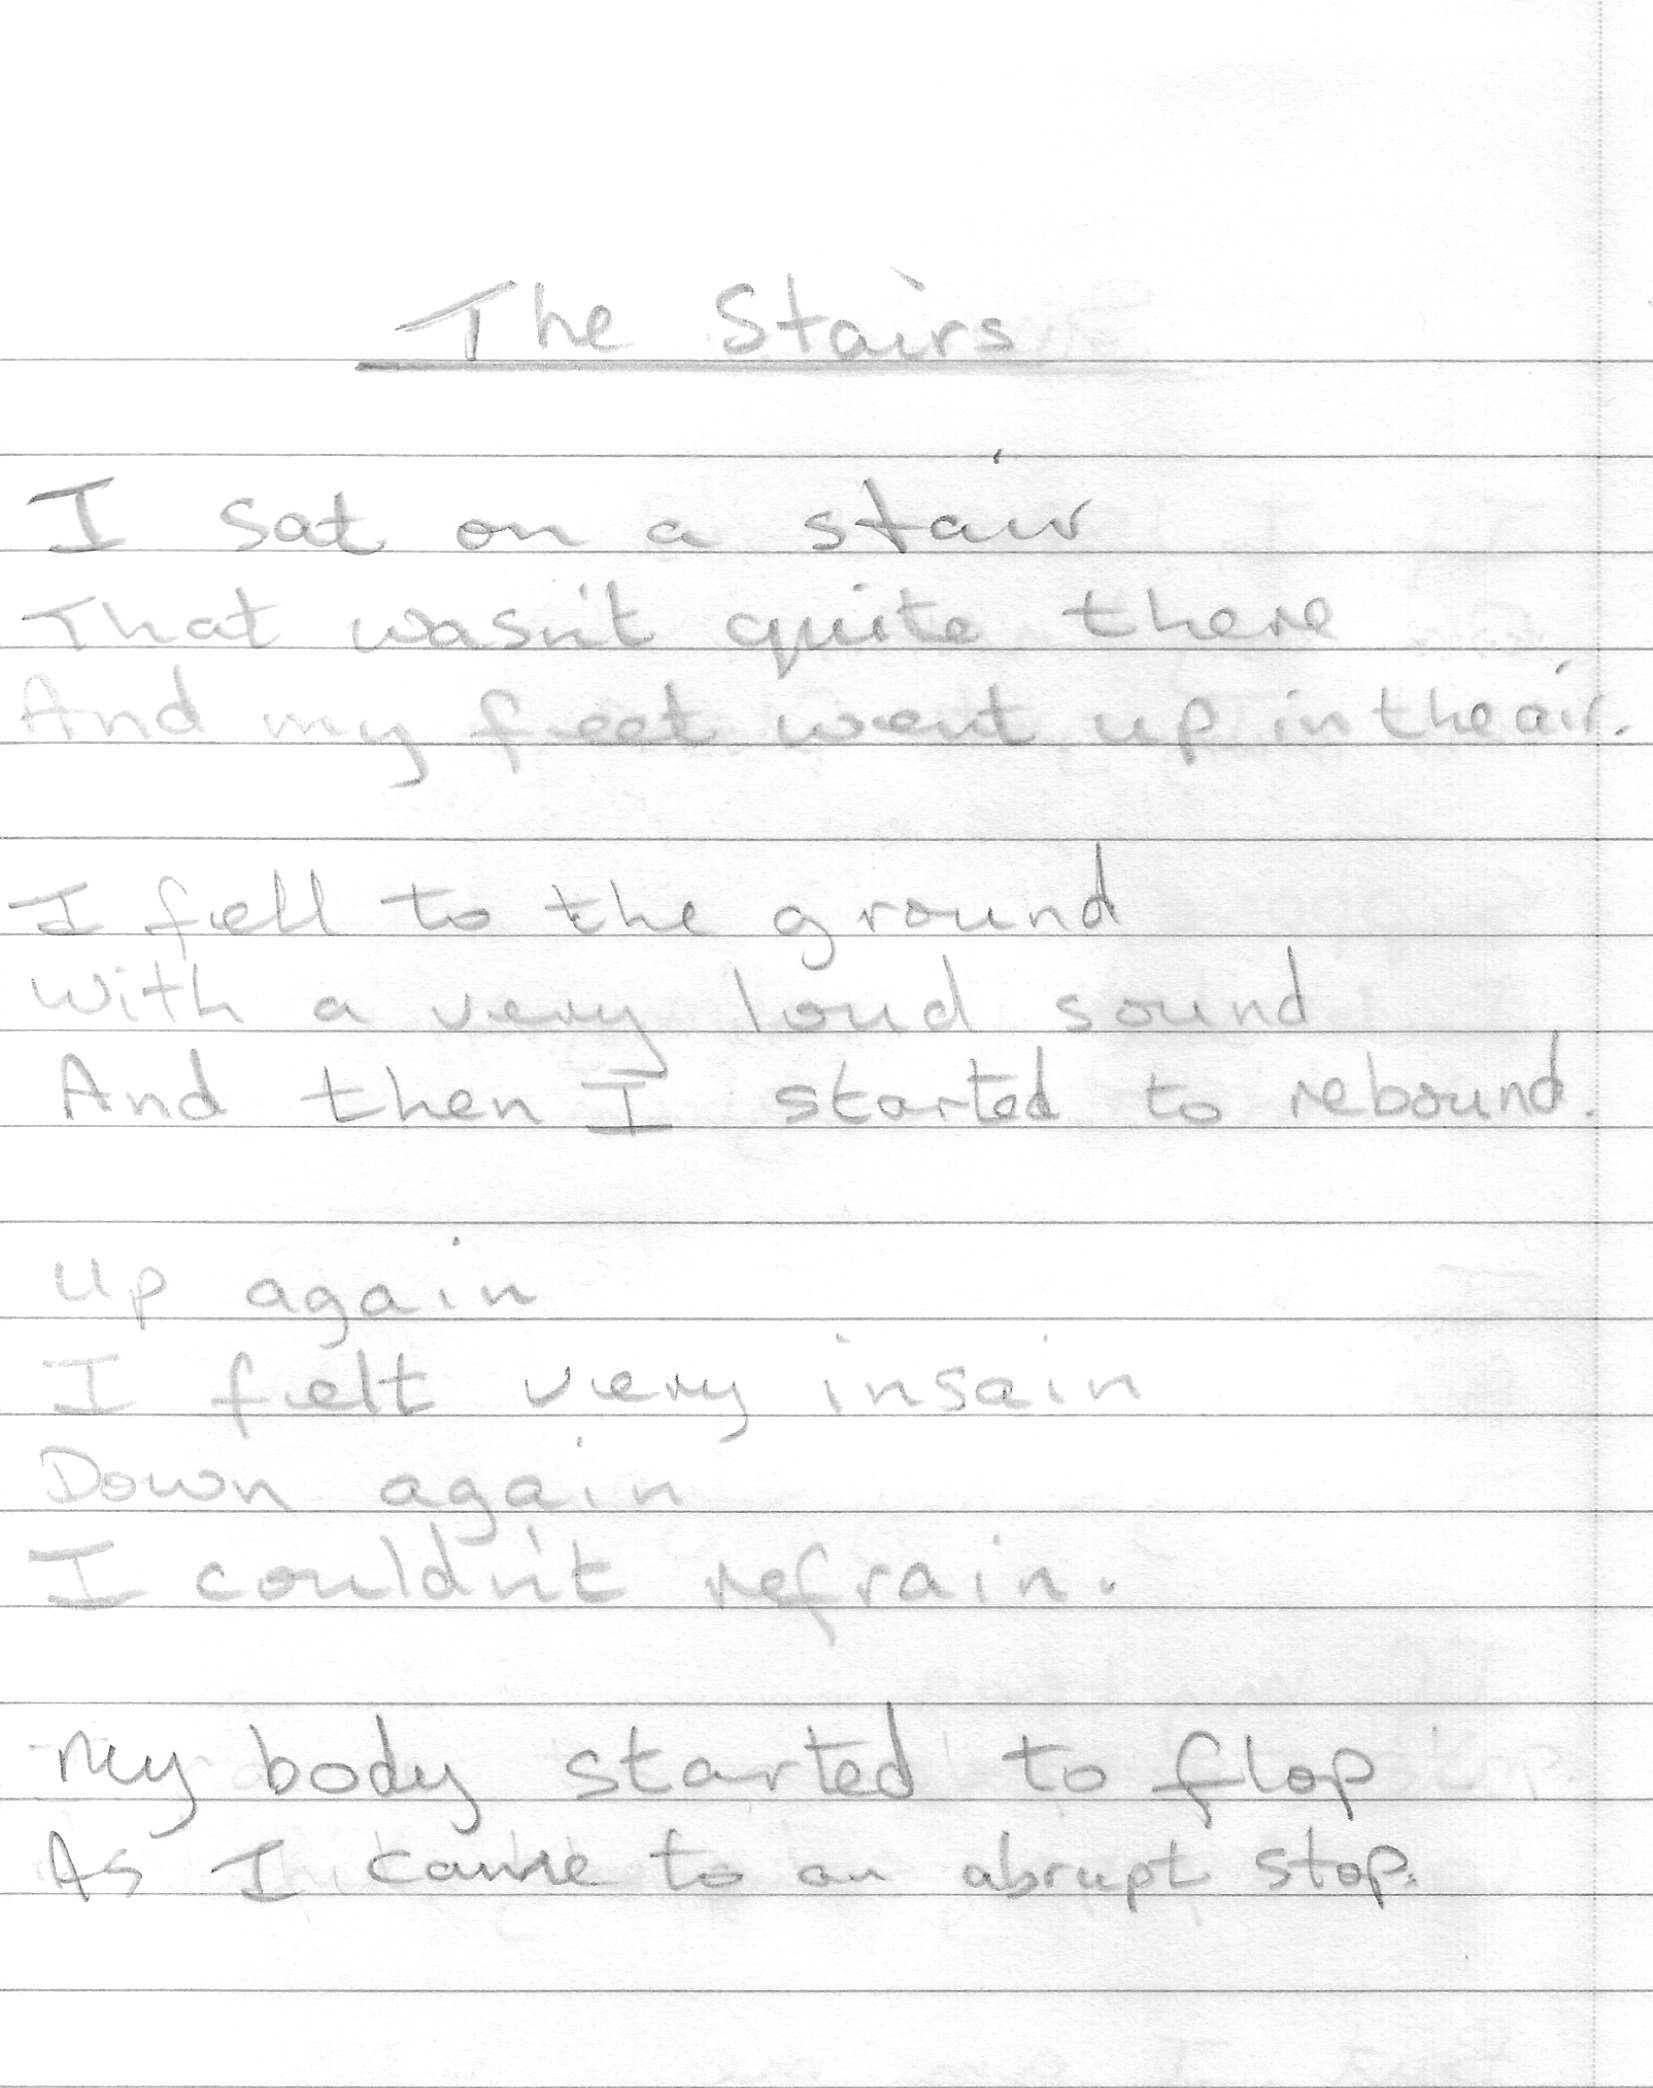 The Stairs
I sat on a stair
That wasn't quite there
And my feet went up in the air.
I fell to the ground
With a very loud sound
And then I started to rebound.
Up again
I felt very insain
Down again
I couldn't refrain.
My body started to flop
As I came to an abrupt stop.